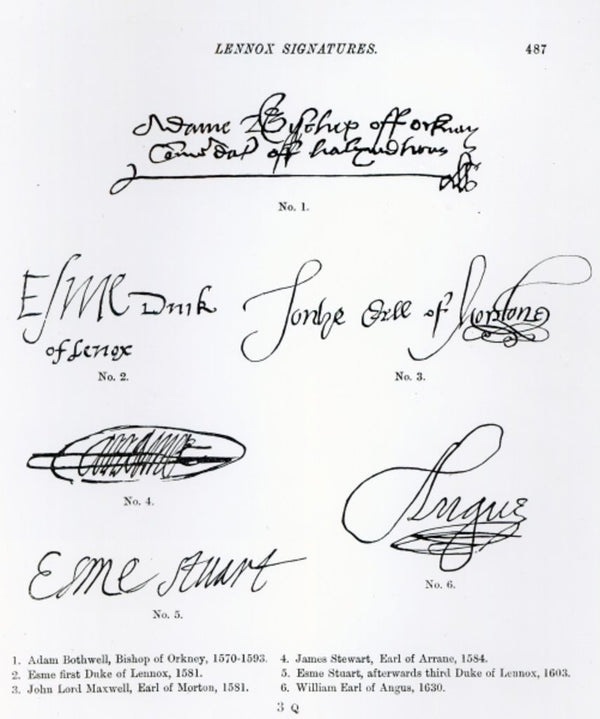 LENNOX SIGNATURES. 487
Adame Bischop off orknay
Comēdat off halyrudhous
No. 1.
Esme Duik
of Lenox
No. 2.
Jonhe Erll of Mortone
No. 3.
No. 4.
Angus
No. 6.
Esme Stuart
No. 5.
1. Adam Bothwell, Bishop of Orkney, 1570-1593. 4. James Stewart, Earl of Arrane, 1584.
2. Esme first Duke of Lennox, 1581. 5. Esme Stuart, afterwards third Duke of Lennox, 1603.
3. John Lord Maxwell, Earl of Morton, 1581. 6. William Earl of Angus, 1630.
3 Q